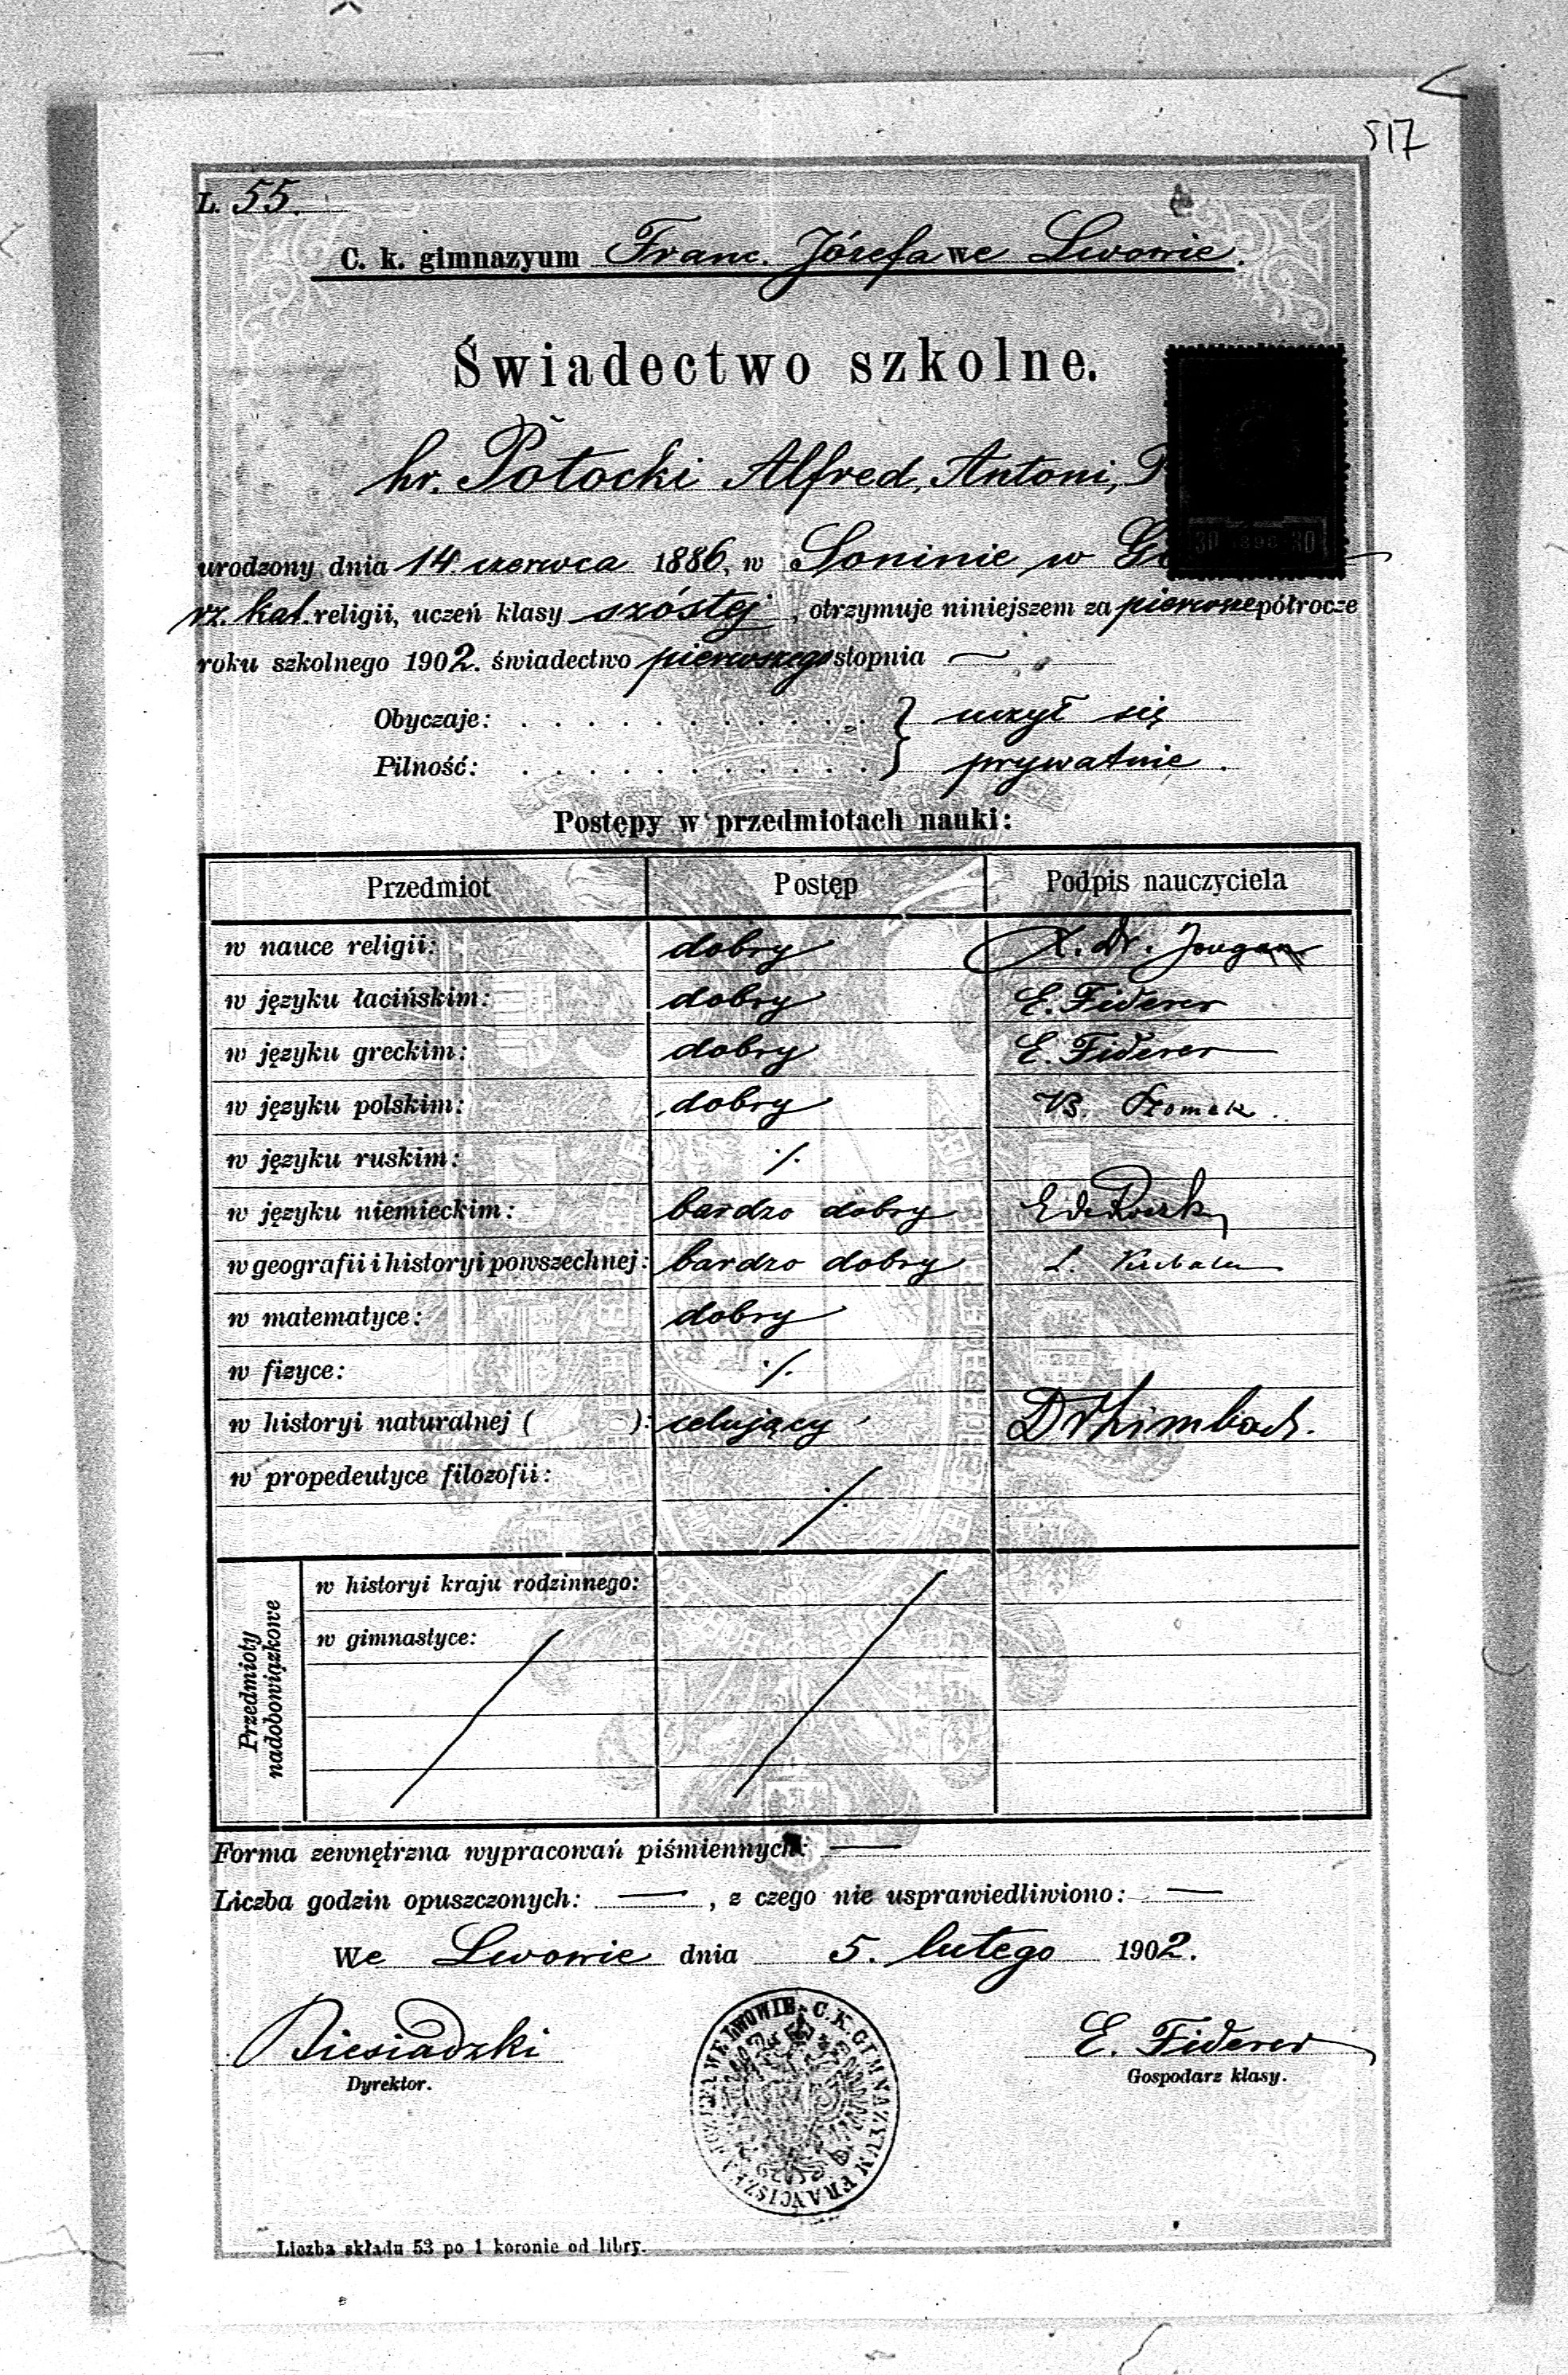 517
L. 55.
C. k. gimnazyum Franc. Józefa we Lwowie.
Świadectwo szkolne.
hr. Potocki Alfred, Antoni,
urodzony dnia 14. czerwca 1886, w Soninie w
30 1898 30
rz. kat. religii, uczeń klasy szóstej, otrzymuje niniejszem za pierwsze półrocze
roku szkolnego 1902. świadectwo pierwszego stopnia —
Obyczaje: . . . . . . . . . . . } uczył się
Pilność: . . . . . . . . . . . } prywatnie.
Postępy w przedmiotach nauki:
Przedmiot Postęp Podpis nauczyciela
w nauce religii: dobry X. Dr. Jougan
w języku łacińskim: dobry E. Fiderer
w języku greckim: dobry E. Fiderer
w języku polskim: dobry
w języku ruskim: ./.
w języku niemieckim: bardzo dobry
w geografii i historyi powszechnej: bardzo dobry L. Kubala
w matematyce: dobry
w fizyce: ./.
w historyi naturalnej ( ): celujący
w propedeutyce filozofii: ./.
Przedmioty nadobowiązkowe
w historyi kraju rodzinnego:
w gimnastyce:
Forma zewnętrzna wypracowań piśmiennych: —
Liczba godzin opuszczonych: —, z czego nie usprawiedliwiono: —
We Lwowie dnia 5. lutego 1902.
Biesiadzki E. Fiderer
Dyrektor. Gospodarz klasy.
C. K. GIMNAZYUM FRANCISZKA JÓZEFA WE LWOWIE
Liczba składu 53 po 1 koronie od libry.